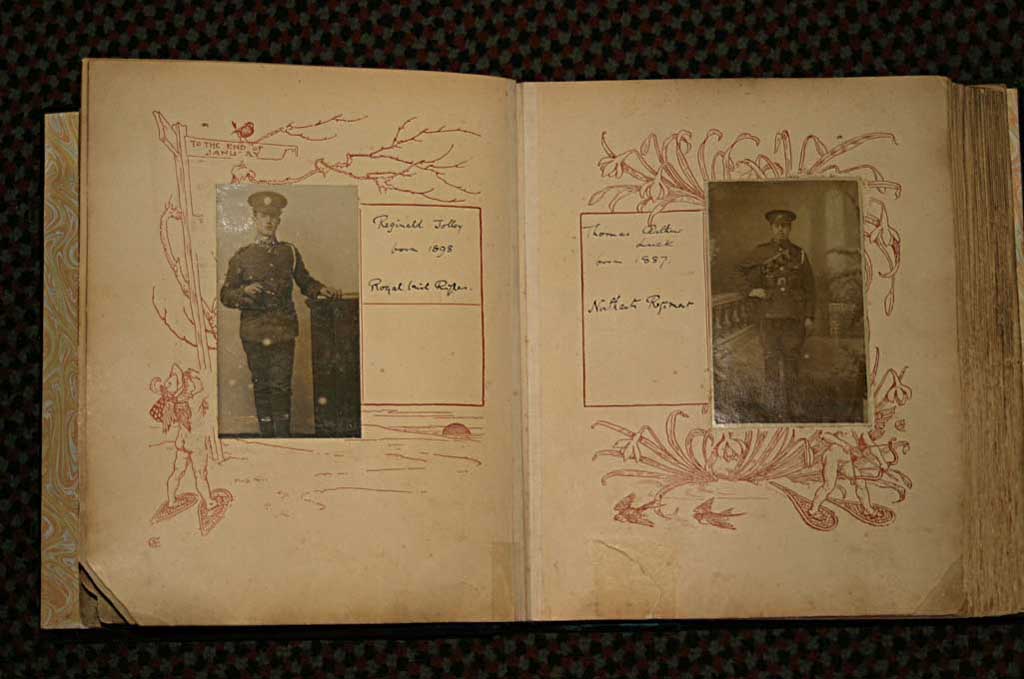 TO THE END OF
JANUARY
Reginald Jolley
born 1898
Royal Irish Rifles.
Thomas
Luck
born 1887.
Northants Regiment